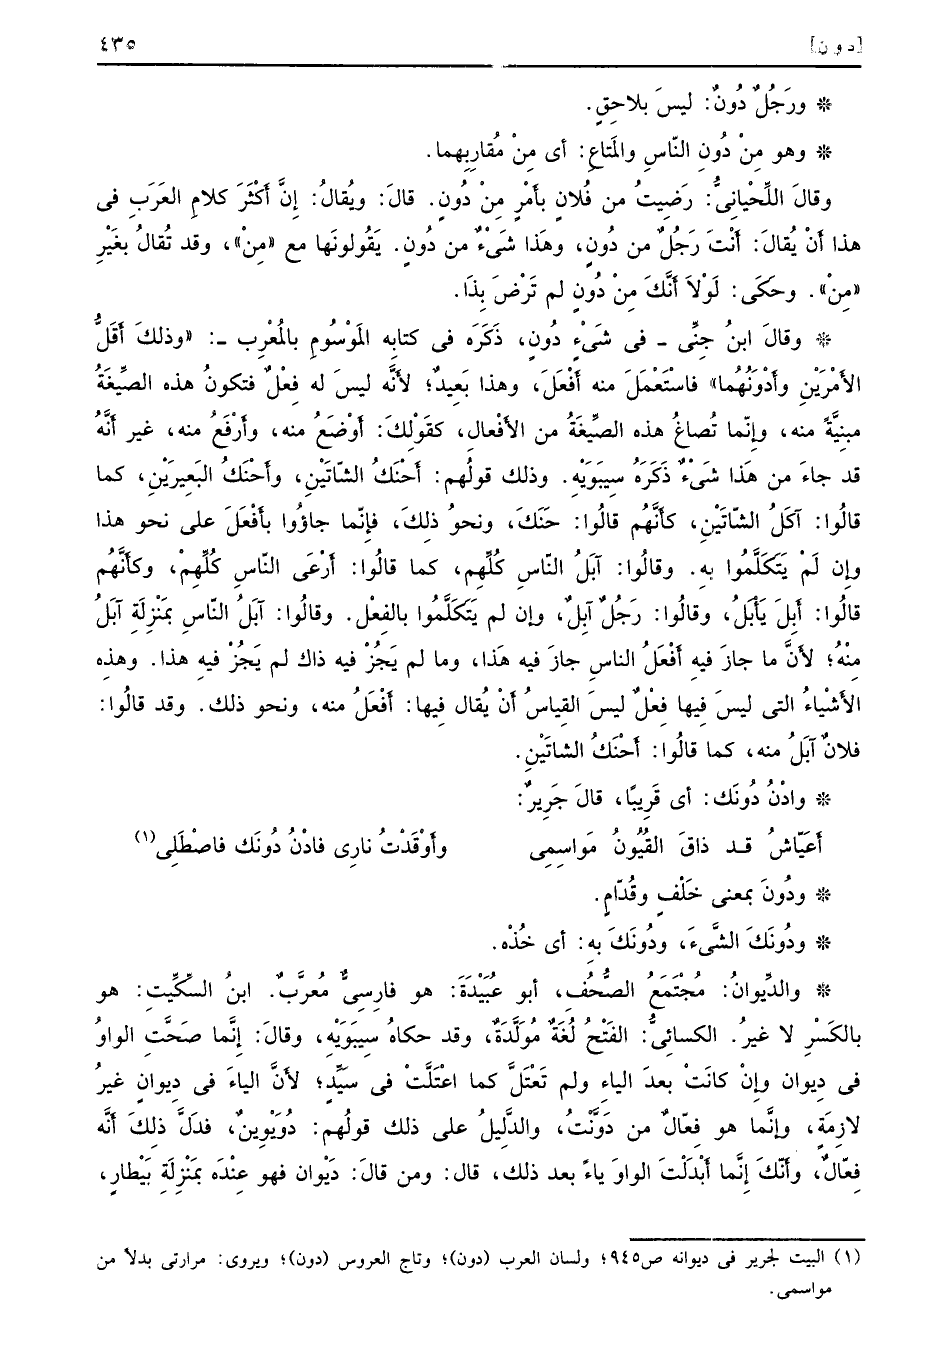 [دون] ٤٣٥
* ورَجُلٌ دُونٌ: ليسَ بلاحِقٍ.
* وهو مِنْ دُونِ النّاسِ والمَتاعِ: أى مِنْ مُقارِبِهِما.
وقالَ اللِّحْيانِىُّ: رَضِيتُ من فُلانٍ بأَمْرٍ مِنْ دُونٍ. قالَ: ويُقالُ: إنَّ أَكْثَرَ كلامِ العَرَبِ فى
هذا أنْ يُقالَ: أَنْتَ رَجُلٌ من دُونٍ، وهَذا شَىْءٌ من دُونٍ. يَقُولونَها مع «مِنْ»، وقد تُقالُ بغَيْرِ
«مِنْ». وحَكَى: لَوْلاَ أنَّكَ مِنْ دُونٍ لم تَرْضَ بِذَا.
* وقالَ ابنُ جِنِّى ـ فى شَىْءٍ دُونٍ، ذَكَرَه فى كتابِه المَوْسُومِ بالمُعْرِب ـ: «وذلكَ أَقَلُّ
الأَمْرَيْنِ وأَدْوَنُهُما» فاسْتَعْمَلَ منه أَفْعَلَ، وهذا بَعِيدٌ؛ لأنَّه ليسَ له فِعْلٌ فتكونُ هذه الصِّيغَةُ
مبنِيَّةً منه، وإنّما تُصاغُ هذه الصِّيغَةُ من الأفْعالِ، كقَوْلِكَ: أَوْضَعُ منه، وأَرْفَعُ منه، غير أنَّهُ
قد جاءَ من هَذا شَىْءٌ ذَكَرَهُ سِيبَوَيْهِ. وذلك قولُهم: أَحْنَكُ الشّاتَيْنِ، وأَحْنَكُ البَعِيرَيْنِ، كما
قالُوا: آكَلُ الشّاتَيْنِ، كأنَّهُم قالُوا: حَنَكَ، ونحوُ ذلِكَ، فإنّما جاؤُوا بأَفْعَلَ على نحوِ هذا
وإن لَمْ يَتَكَلَّمُوا بهِ. وقالُوا: آبَلُ النّاسِ كُلِّهِم، كما قالُوا: أَرْعَى النّاسِ كُلِّهِمْ، وكأنَّهُم
قالُوا: أَبِلَ يَأْبَلُ، وقالُوا: رَجُلٌ آبِلٌ، وإن لم يَتَكَلَّمُوا بالفِعْلِ. وقالُوا: آبَلُ النّاسِ بمَنْزِلَةِ آبَلُ
مِنْهُ؛ لأنَّ ما جازَ فيه أَفْعَلُ الناسِ جازَ فيه هَذا، وما لم يَجُزْ فيه ذاك لم يَجُزْ فيه هذا. وهذه
الأشْياءُ التى ليسَ فِيها فِعْلٌ ليسَ القِياسُ أنْ يُقال فِيها: أَفْعَلُ منه، ونحو ذلك. وقد قالُوا:
فلانٌ آبَلُ منه، كما قالُوا: أَحْنَكُ الشاتَيْنِ.
* وادْنُ دُونَك: أى قَرِيبًا، قالَ جَرِيرٌ:
أَعَيّاشُ قـد ذاقَ القُيُونُ مَواسِمِى وأَوْقَدْتُ نارِى فادْنُ دُونَك فاصْطَلِى(١)
* ودُونَ بمعنى خَلْفٍ وقُدّامٍ.
* ودُونَكَ الشَّىءَ، ودُونَكَ بِه: أى خُذْه.
* والدِّيوانُ: مُجْتَمَعُ الصُّحُفِ، أبو عُبَيْدَةَ: هو فارِسِىٌّ مُعَرَّبٌ. ابنُ السكِّيتِ: هو
بالكَسْرِ لا غيرُ. الكسائِىُّ: الفَتْحُ لُغَةٌ مُوَلَّدَةٌ، وقد حكاهُ سِيبَوَيْهِ، وقالَ: إنَّما صَحَّتِ الواوُ
فى دِيوان وإنْ كانَتْ بعدَ الياءِ ولم تَعْتَلَّ كما اعْتَلَّتْ فى سَيِّدٍ؛ لأنَّ الياءَ فى دِيوانٍ غيرُ
لازِمَةٍ، وإنَّما هو فِعّالٌ من دَوَّنْتُ، والدَّلِيلُ على ذلك قولُهم: دُوَيْوِينٌ، فدَلَّ ذلكَ أنَّه
فِعّالٌ، وأنَّكَ إنَّما أَبْدَلْتَ الواوَ ياءً بعد ذلك، قال: ومن قالَ: دَيْوان فهو عِنْدَه بمَنْزِلَةِ بَيْطارٍ،
(١) البيت لجرير فى ديوانه ص٩٤٥؛ ولسان العرب (دون)؛ وتاج العروس (دون)؛ ويروى: مرارتى بدلاً من
مواسمى.